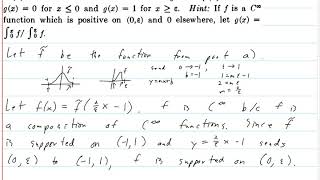 g(x) = 0 for x ≤ 0 and g(x) = 1 for x ≥ ε. Hint: If f is a C∞
function which is positive on (0, ε) and 0 elsewhere, let g(x) =
∫₀ˣ f / ∫₀^ε f.
Let f̃ be the function from part a).
send 0 → -1
b = -1
ε → 1
1 = mε - 1
y = mx+b
2 = mε
m = 2/ε
Let f(x) = f̃(2/ε x - 1). f is C∞ b/c f is
a composition of C∞ functions. Since f̃
is supported on (-1,1) and y = 2/ε x - 1 sends
(0, ε) to (-1,1), f is supported on (0, ε).